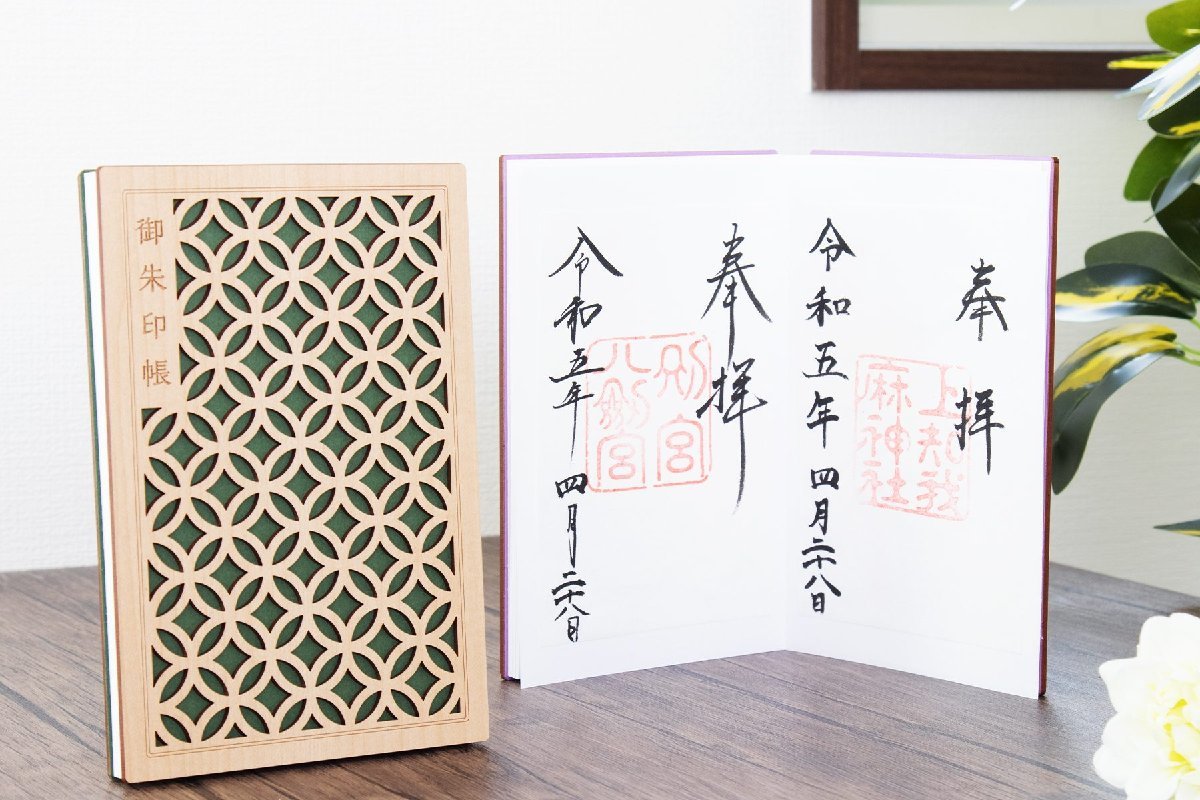 御朱印帳
奉拝
上知我
麻神社
令和五年 四月二十八日
奉拝
別宮
八剱宮
令和五年 四月二十八日